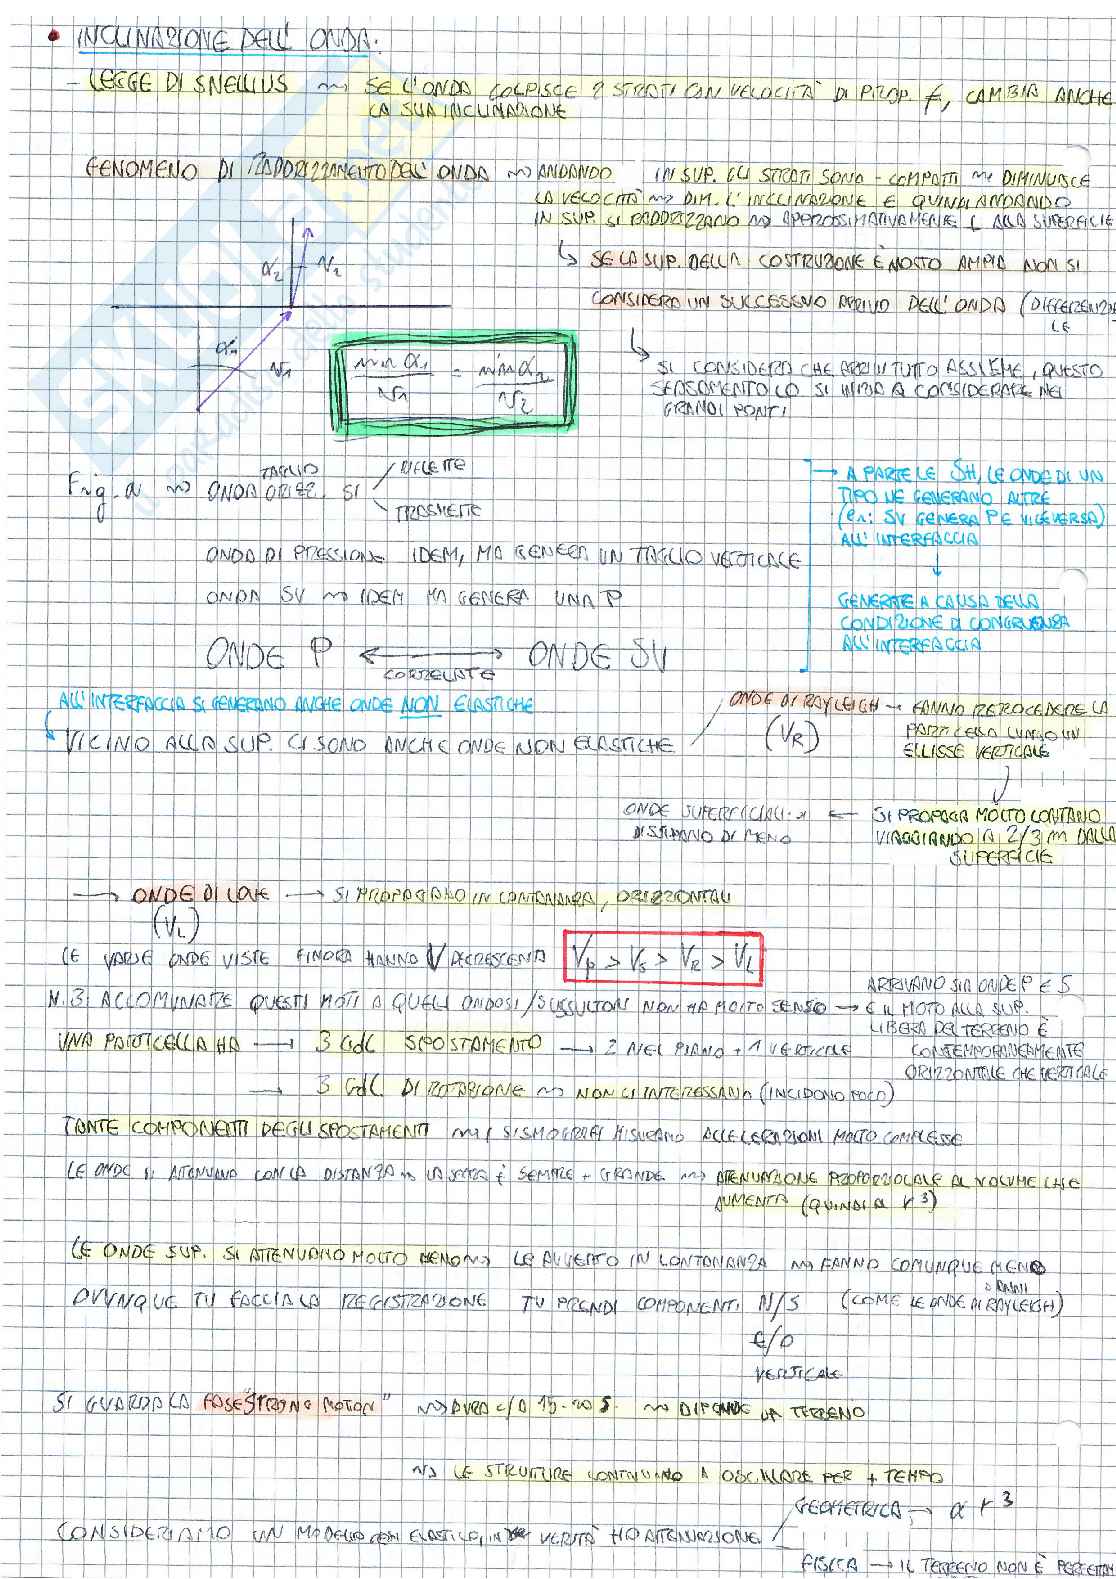 INCLINAZIONE DELL' ONDA:
- LEGGE DI SNELLIUS ~> SE L'ONDA COLPISCE 2 STRATI CON VELOCITÀ DI PROP. ≠, CAMBIA ANCHE
LA SUA INCLINAZIONE
FENOMENO DI RADDRIZZAMENTO DELL'ONDA ~> ANDANDO IN SUP. GLI STRATI SONO - COMPATTI ~> DIMINUISCE
LA VELOCITÀ ~> DIM. L'INCLINAZIONE E QUINDI ANDANDO
IN SUP. SI RADDRIZZANO ~> APPROSSIMATIVAMENTE ⊥ ALLA SUPERFICIE
↳ SE LA SUP. DELLA COSTRUZIONE È MOLTO AMPIA NON SI
CONSIDERA UN SUCCESSIVO ARRIVO DELL'ONDA (DIFFERENZIA
LE
↳ SI CONSIDERA CHE ARRIVI TUTTO ASSIEME, QUESTO
SFASAMENTO LO SI INIZIA A CONSIDERARE NEI
GRANDI PONTI
α2 v2
α1 v1
sin α1 / v1 = sin α2 / v2
Fig. a ~> ONDA TAGLIO ORIZZ. SI
RIFLETTE
TRASMETTE
ONDA DI PRESSIONE IDEM, MA GENERA UN TAGLIO VERTICALE
ONDA SV ~> IDEM MA GENERA UNA P
ONDE P ↔ ONDE SV
CORRELATE
→ A PARTE LE SH, LE ONDE DI UN
TIPO NE GENERANO ALTRE
(es: SV GENERA P E VICEVERSA)
ALL'INTERFACCIA
GENERATE A CAUSA DELLA
CONDIZIONE DI CONGRUENZA
ALL'INTERFACCIA
ALL'INTERFACCIA SI GENERANO ANCHE ONDE NON ELASTICHE
VICINO ALLA SUP. CI SONO ANCHE ONDE NON ELASTICHE
ONDE DI RAYLEIGH → FANNO RETROCEDERE LA
(VR)
PARTICELLA LUNGO UN
ELLISSE VERTICALE
SI PROPAGA MOLTO LONTANO
VIAGGIANDO A 2/3 m DALLA
SUPERFICIE
← ONDE SUPERFICIALI
DISSIPANO DI MENO
→ ONDE DI LOVE → SI PROPAGANO IN LONTANANZA, ORIZZONTALI
(VL)
LE VARIE ONDE VISTE FINORA HANNO V DECRESCENTI Vp > Vs > VR > VL
N.B. ACCOMUNARE QUESTI MOTI A QUELLI ONDOSI/SUSSULTORI NON HA MOLTO SENSO →
ARRIVANO SIA ONDE P E S
E IL MOTO ALLA SUP.
LIBERA DEL TERRENO È
CONTEMPORANEAMENTE
ORIZZONTALE CHE VERTICALE
UNA PARTICELLA HA → 3 GdL SPOSTAMENTO → 2 NEL PIANO + 1 VERTICALE
→ 3 GdL DI ROTAZIONE ~> NON CI INTERESSANO (INCIDONO POCO)
TANTE COMPONENTI DEGLI SPOSTAMENTI ~> I SISMOGRAFI MISURANO ACCELERAZIONI MOLTO COMPLESSE
LE ONDE SI ATTENUANO CON LA DISTANZA ~> LA SFERA È SEMPRE + GRANDE ~> ATTENUAZIONE PROPORZIONALE AL VOLUME CHE
AUMENTA (QUINDI A r³)
LE ONDE SUP. SI ATTENUANO MOLTO MENO ~> LE AVVERTO IN LONTANANZA ~> FANNO COMUNQUE MENO
DANNI
OVUNQUE TU FACCIA LA REGISTRAZIONE TU PRENDI COMPONENTI N/S (COME LE ONDE DI RAYLEIGH)
E/O
VERTICALE
SI GUARDA LA FASE "STRONG MOTION" ~> DURA C/A 15-20 s. ~> DIPENDE DA TERRENO
~> LE STRUTTURE CONTINUANO A OSCILLARE PER + TEMPO
CONSIDERIAMO UN MODELLO ELASTICO, IN VERITÀ HO ATTENUAZIONE
GEOMETRICA → α r³
FISICA → IL TERRENO NON È PERFETTAM